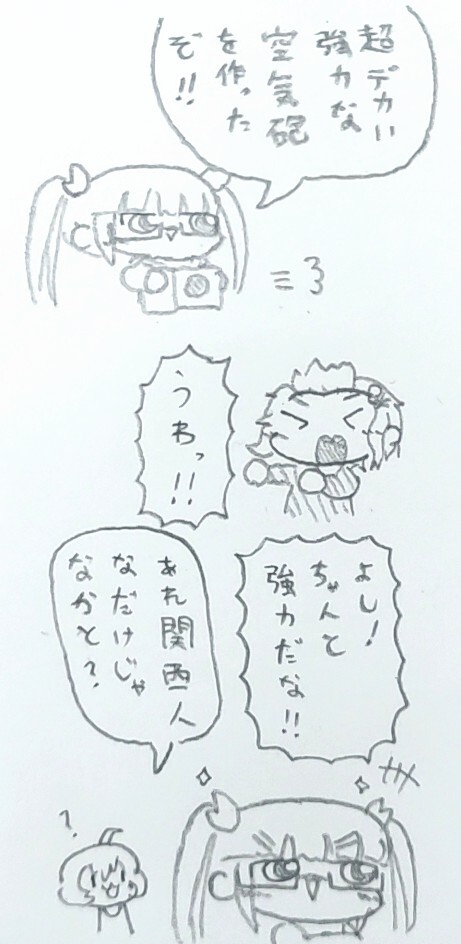 超デカい
強力な
空気砲
を作った
ぞ!!
うわっ!!
よし!
ちゃんと
強力だな!!
あれ関西人
なだけじゃ
なかと?
?